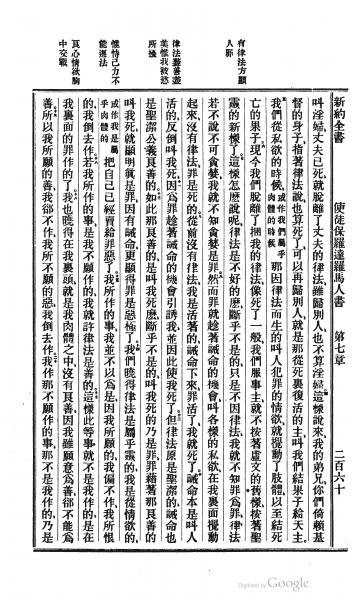 新約全書　使徒保羅達羅馬人書　第七章　二百六十
有律法方顯
人罪
律法雖善並
美惟我被慾
所擾
惟恃己力不
能遵法
良心情欲胸
中交戰
叫淫婦、丈夫已死就脫離了丈夫的律法、雖歸別人、也不算淫婦、這樣說來、我的弟兄、你們倚賴基
督的身子、指著律法說、也算死了、可以再歸別人、就是那從死裏復活的主、叫我們結果子給天主、
我們從私欲的時候、或作我們屬乎肉體的時候那因律法而生的叫人犯罪的情欲、就攪動了肢體、以至結死
亡的果子、現今我們脫離了捆我的律法、像死了一般、我們服事主、就不按著虛文的舊樣、按著聖
靈的新樣了、這樣怎麽說呢、律法是不好的麽、斷乎不是的、只是不因律法、我就不知罪爲罪、律法
若不說不可貪婪、我就不知貪婪是罪、然而罪就趁著誡命的機會、叫各樣的私欲在我裏面攪動
起來、沒有律法、罪是死的、從前沒有律法、我是活著的、誡命下來、罪活了、我就死了、誡命本是叫人
活的、反倒叫我死、因爲罪趁著誡命的機會引誘我、並因此使我死了、但律法原是聖潔的、誡命也
是聖潔公義良善的、如此那良善的是叫我死麽、斷乎不是的、叫我死的乃是罪、罪藉著那良善的
叫我死、就顯明眞是罪、因有誡命、更顯得罪是惡極了、我們曉得律法是屬乎靈的、我是從情欲的、
或作我是屬乎肉體的把自己已經賣給罪惡了、我所作的事、我並不以爲是、因我所願的、我偏不作、我所恨
的、我倒去作、若我所作的事、是我不願作的、我就許律法是善的、這樣此等事就不是我作的、是在
我裏面的罪作的了、我也曉得在我裏頭、就是我肉體之中、沒有良善、因我雖願意爲善、卻不能爲
善、所以我所願的善、我卻不作、我所不願的惡、我倒去作、我作那不願作的事、那不是我作的、乃是
Digitized by Google